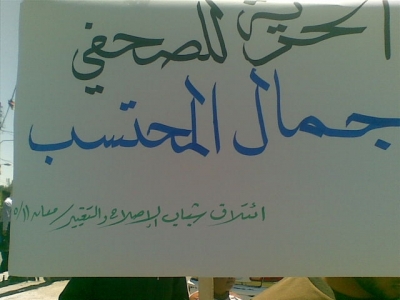 الحرية للصحفي
جمال المحتسب
ائتلاف شباب الإصلاح والتغيير/معان ٥/١١